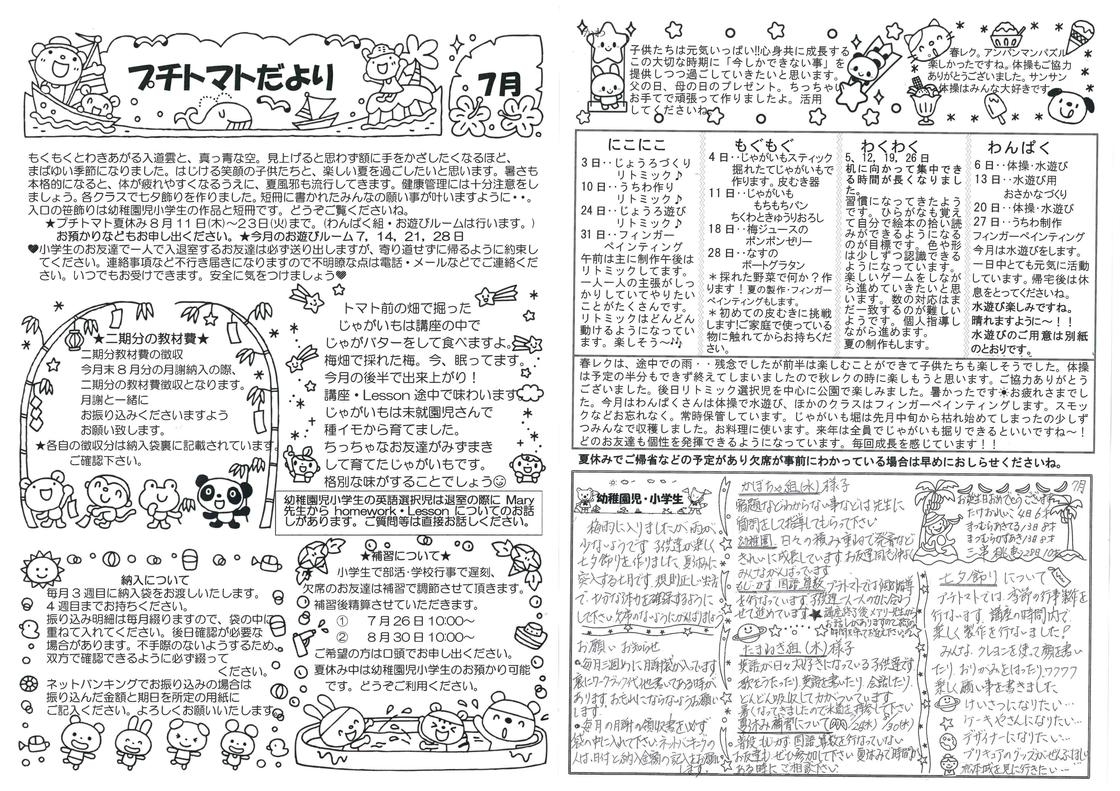 プチトマトだより
7月
もくもくとわきあがる入道雲と、真っ青な空。見上げると思わず額に手をかざしたくなるほど、
まばゆい季節になりました。はじける笑顔の子供たちと、楽しい夏を過ごしたいと思います。暑さも
本格的になると、体が疲れやすくなるうえに、夏風邪も流行してきます。健康管理には十分注意をし
ましょう。各クラスで七夕飾りを作りました。短冊に書かれたみんなの願い事が叶いますように・・。
入口の笹飾りは幼稚園児小学生の作品と短冊です。どうぞご覧くださいね。
★プチトマト夏休み8月11日(木)~23日(火)まで。(わんぱく組・お遊びルームは行います。)
お預かりなどもお申し出ください。★今月のお遊びルーム7，14，21，28日
♥小学生のお友達で一人で入退室するお友達は必ず送り出しますが、寄り道せずに帰るように約束し
てください。連絡事項など不行き届きになりますので不明瞭な点は電話・メールなどでご連絡くだ
さい。いつでもお受けできます。安全に気をつけましょう♥
★二期分の教材費★
二期分の教材費の徴収
今月末8月分の月謝納入の際、
二期分の教材費徴収となります。
月謝と一緒に
お振り込みくださいますよう
お願い致します。
★各自の徴収分は納入袋裏に記載されています。
ご確認下さい。
トマト前の畑で掘った
じゃがいもは講座の中で
じゃがバターをして食べますよ。
梅畑で採れた梅。今、眠ってます。
今月の後半で出来上がり！
講座・Lesson 途中で味わいます
じゃがいもは未就園児さんで
種イモから育てました。
ちっちゃなお友達がみずまき
して育てたじゃがいもです。
格別な味がすることでしょう
幼稚園児小学生の英語選択児は退室の際に Mary
先生から homework・Lesson についてのお話
しがあります。ご質問等は直接お話しください。
納入について
毎月3週目に納入袋をお渡しいたします。
4週目までお持ちください。
振り込み明細は毎月綴りますので、袋の中に
重ねて入れてください。後日確認が必要な
場合があります。不手際のないようするため、
双方で確認できるように必ず綴って
ください。
ネットバンキングでお振り込みの場合は
振り込んだ金額と期日を所定の用紙に
ご記入ください。よろしくお願いいたします。
★補習について★
小学生で部活・学校行事で遅刻、
欠席のお友達は補習で調節させて頂きます。
補習後精算させていただきます。
① 7月26日10:00~
② 8月30日10:00~
ご希望の方は口頭でお申し出ください。
夏休み中は幼稚園児小学生のお預かり可能
です。どうぞご利用ください。
子供たちは元気いっぱい!!心身共に成長する
この大切な時期に「今しかできない事」を
提供しつつ過ごしていきたいと思います。
父の日、母の日のプレゼント。ちっちゃい
お手てで頑張って作りましたよ。活用
してくださいね
春レク。アンパンマンパズル
楽しかったですね。体操もご協力
ありがとうございました。サンサン
体操はみんな大好きです
にこにこ
3日・・じょうろづくり
リトミック♪
10日・・うちわ作り
リトミック♪
24日・・じょうろ遊び
リトミック♪
31日・・フィンガー
ペインティング
午前は主に制作午後は
リトミックしてます。
一人一人の主張がしっ
かりしていてやりたい
ことがたくさんです。
リトミックはどんどん
動けるようになってい
ます。楽しそう~♪
もぐもぐ
4日・・じゃがいもスティック
掘れたてじゃがいもで
作ります。皮むき器
11日・・じゃがいも
もちもちパン
ちくわときゅうりおろし
18日・・梅ジュースの
ポンポンゼリー
28日・・なすの
ポートグラタン
＊採れた野菜で何か？作
ります！夏の製作・フィンガー
ペインティングもします。
＊初めての皮むきに挑戦
します!ご家庭で使っている
物に触れてからお持ちくだ
さい。
わくわく
5、12、19、26日
机に向かって集中でき
る時間が長くなりまし
た。
習慣になってきたよう
です。ひらがなも覚え
て自分で絵本の拾い読
みができるようになる
のが目標です。色や形
は少しずつ認識できる
ようになっています。
楽しいゲームをしなが
ら進めていきたいと思
います。数の対応はま
だ一致するのが難しい
ようです。個人指導し
ながら進めます。
夏の制作もします。
わんぱく
6日・・体操・水遊び
13日・・水遊び用
おさかなづくり
20日・・体操・水遊び
27日・・うちわ制作
フィンガーペインティング
今月は水遊びをします。
一日中とても元気に活動
しています。帰宅後は休
息をとってくださいね。
水遊び楽しみですね。
晴れますように~！！
水遊びのご用意は別紙
のとおりです。
春レクは、途中での雨・・残念でしたが前半は楽しむことができて子供たちも楽しそうでした。体操
は予定の半分もできず終えてしまいましたので秋レクの時に楽しもうと思います。ご協力ありがとう
ございました。後日リトミック選択児を中心に公園で楽しみました。暑かったです☀お疲れさまでし
た。今月はわんぱくさんは体操で水遊び、ほかのクラスはフィンガーペインティングします。スモッ
クなどお忘れなく。常時保管しています。じゃがいも堀は先月中旬から枯れ始めてしまったの少しず
つみんなで収穫しました。お料理に使います。来年は全員でじゃがいも掘りできるといいですね~！
どのお友達も個性を発揮できるようになっています。毎回成長を感じています！！
夏休みでご帰省などの予定があり欠席が事前にわかっている場合は早めにおしらせくださいね。
幼稚園児・小学生
梅雨に入りましたが雨が
少ないようです。子供達が楽しく
七夕飾りを作りました。夏休みに
お願い お知らせ
かぼちゃ組(水)様子
宿題などわからない事などは先生に
質問をして指導してもらって下さい
たまねぎ組(木)様子
七夕飾りについて
プチトマトでは、季節の行事製作を
行ないます。講座の時間内で
楽しく製作を行ないました。
みんな、クレヨンを使って顔を書い
たり、おりがみをはったり
楽しく願い事を書きました
けいさつになりたい…
ケーキやさんになりたい…
デザイナーになりたい…
松本城を見に行きたい…